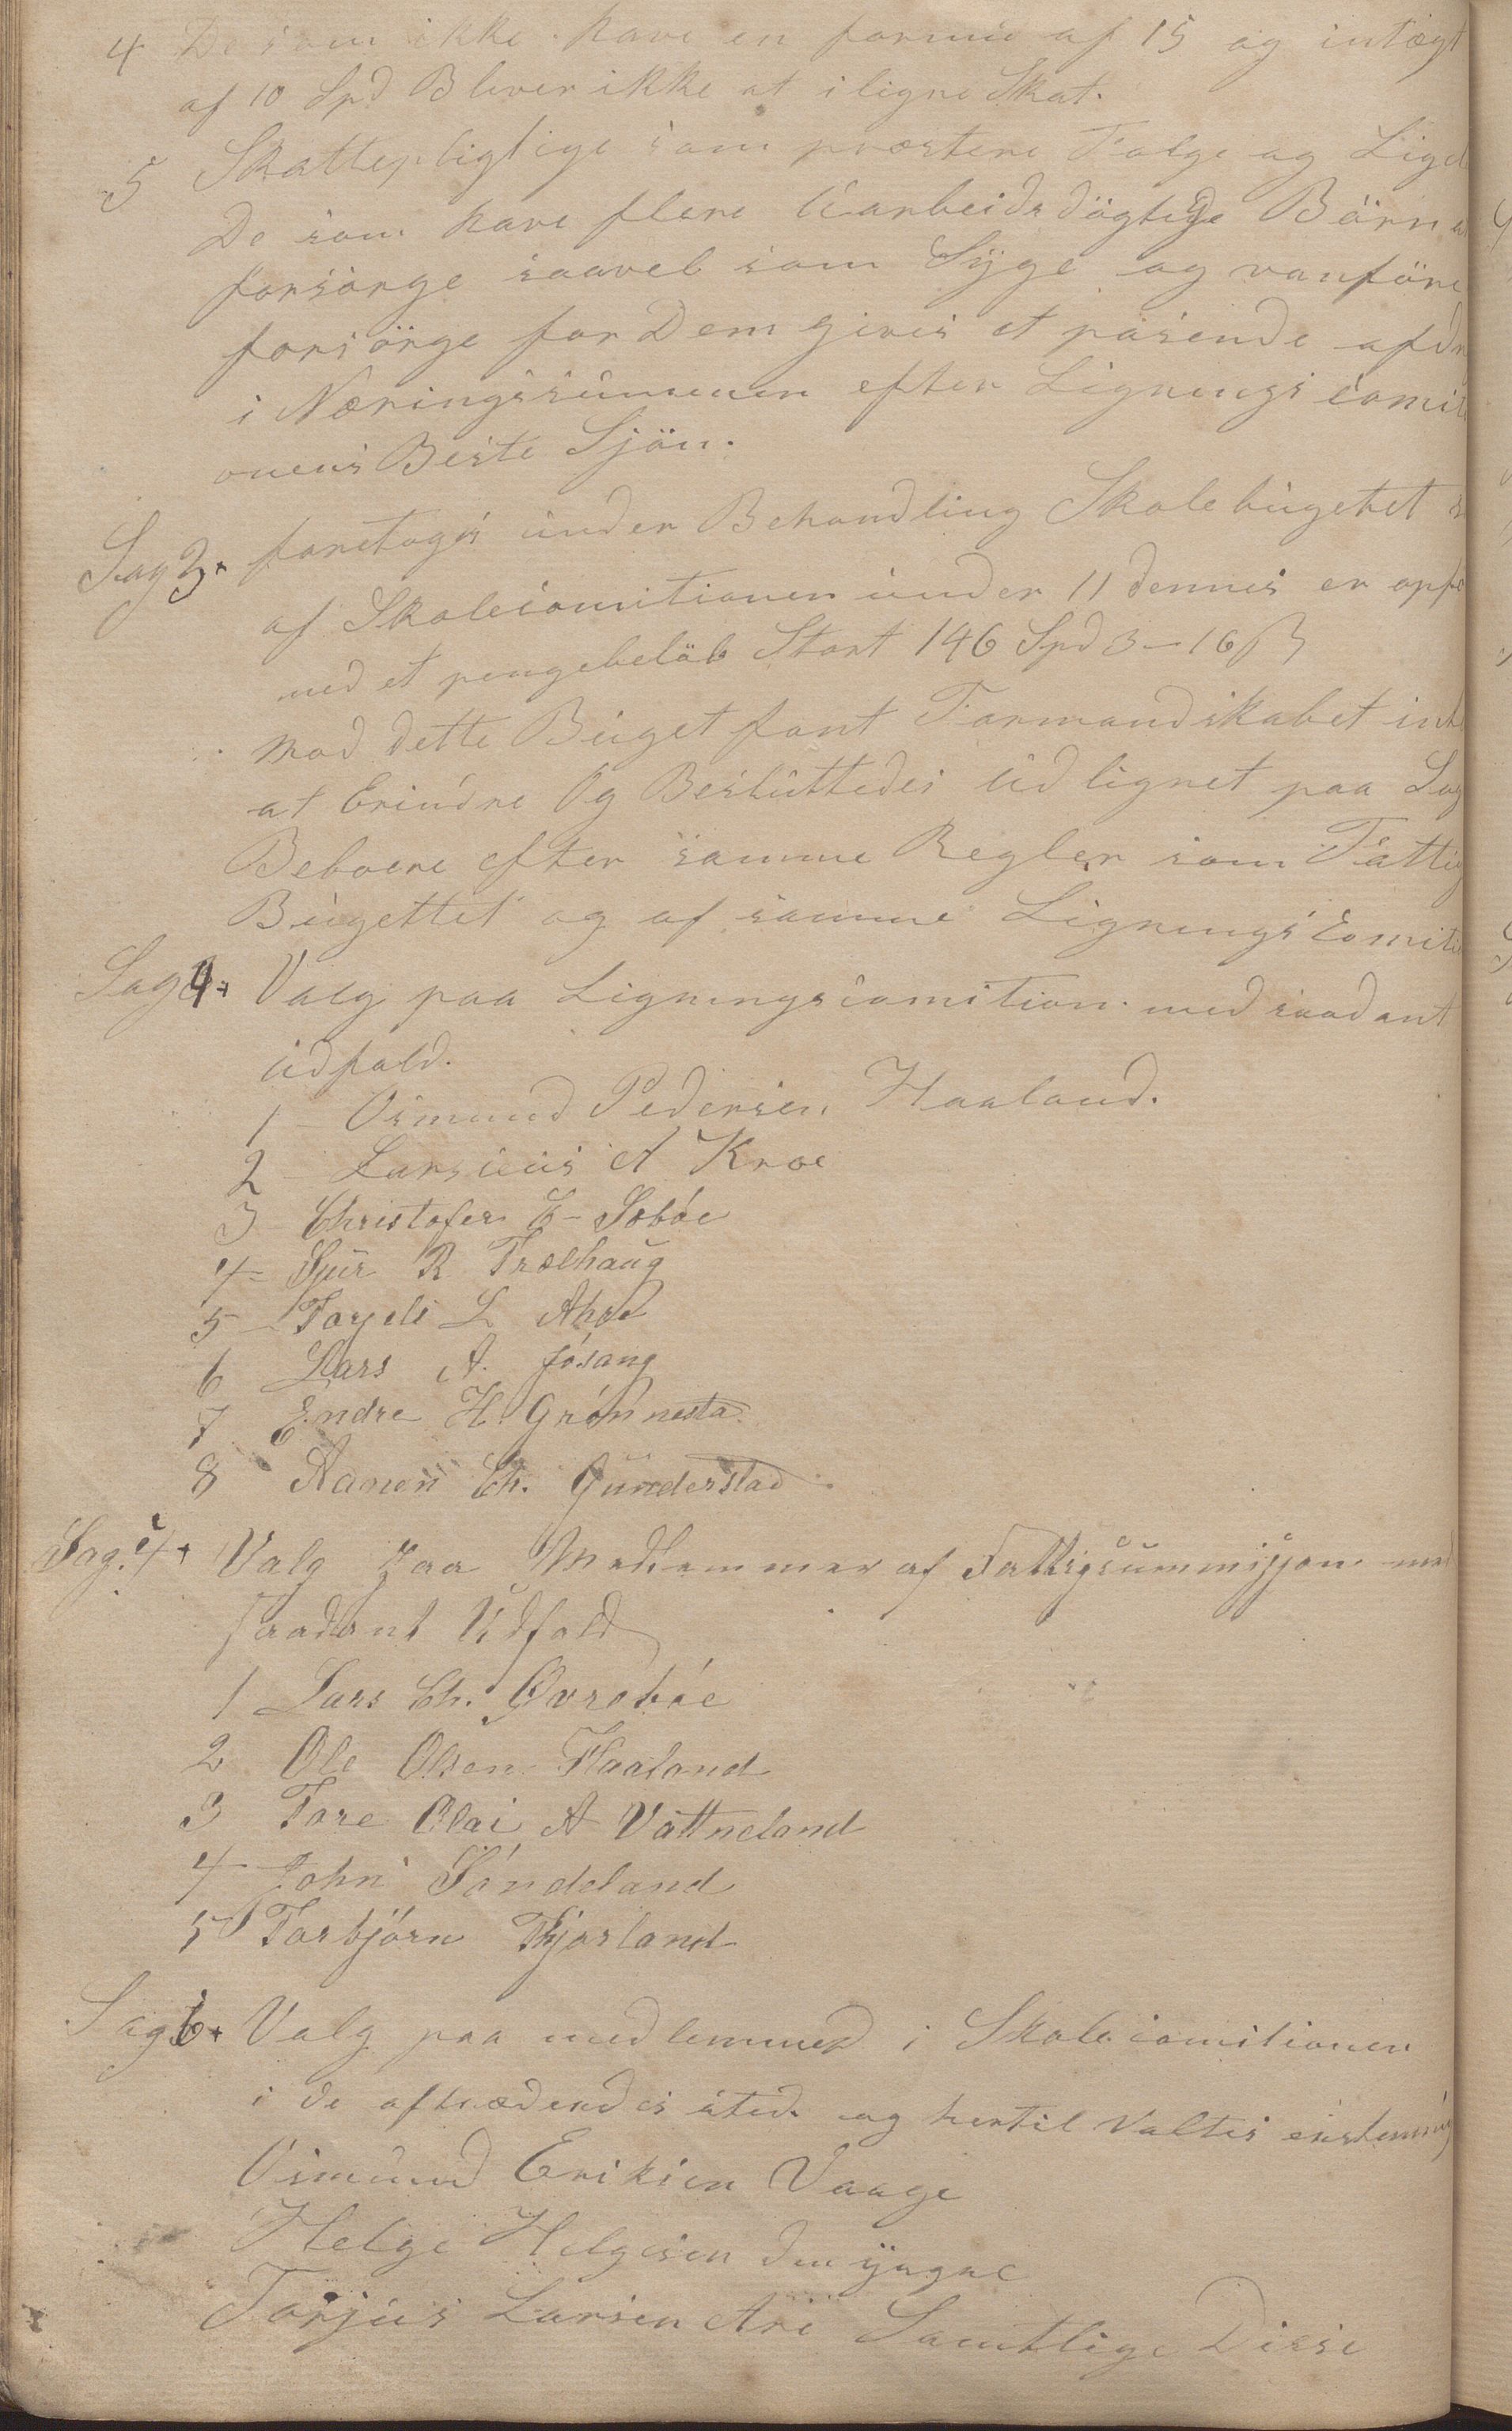 4 De som ikke have en formue af 15 og intægt
af 10 Spd Bliver ikke at iligne Skat.
5 Skattepligtige som præstere Følge og Lige
De som have flere Uarbeidsdögtige Börn
forsørge saavel som Syge og vanföre
forsörge for Dem givis et pasende afdr
i Næringssummen efter Lignings comit
onens Beste Sjön.
Sag 3. foretogis under Behandling Skolebugetet
af Skolecomitionen under 11 dennis er opf
med et pengebelöb Stort 146 Spd 3 - 16 β
Mod dette Buget fant Formandskabet int
at Erindre Og Besluttedes Udlignet paa
Beboere efter samme Regler som Fattig
Bugettet og af samme Lignings Comiti
Sag 4. Valg paa Ligningscomition med saadant
udfald.
1 - Osmund Pedersen Haaland.
2 - Larsius A Kroe
3 - Christofer E - Söböe
4 - Sjur R Trælhaug
5 - Torjels L Ahre
6 Lars A. Jösang
7 Endre H. Grönnesta
8 Aanen Ch. Gunderstad
Sag. Valg paa Medlemmer af Fattigcummisjon med
saadant Udfald
1 Lars Ch. Øvreböe
2 Ole Olsen Haaland
3 Tore Olai A Vattneland
4 John Söndeland
5 Torbjörn
Sag 6. Valg paa medlemmer i Skolecomitionen
i de aftrædendes sted og hertil Valtes enstemmig
Osmund Eriksen Vaage
Helge Helgesen den yngre
Torjus Larsen Are Samtlige Disse